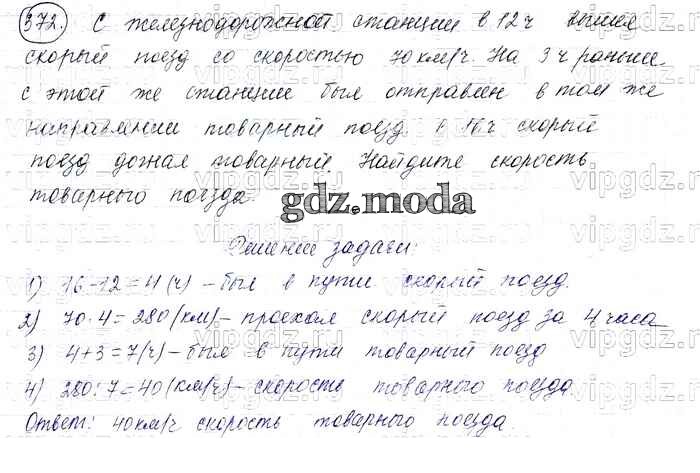 372. С железнодорожной станции в 12ч вышел
скорый поезд со скоростью 70 км/ч. На 3 ч раньше
с этой же станции был отправлен в том же
направлении товарный поезд. В 16ч скорый
поезд догнал товарный. Найдите скорость
товарного поезда.
gdz.moda
Решение задачи:
1) 16-12=4 (ч) – был в пути скорый поезд.
2) 70·4=280 (км) – проехал скорый поезд за 4 часа
3) 4+3=7 (ч) – был в пути товарный поезд
4) 280:7=40 (км/ч) – скорость товарного поезда
Ответ: 40км/ч скорость товарного поезда.